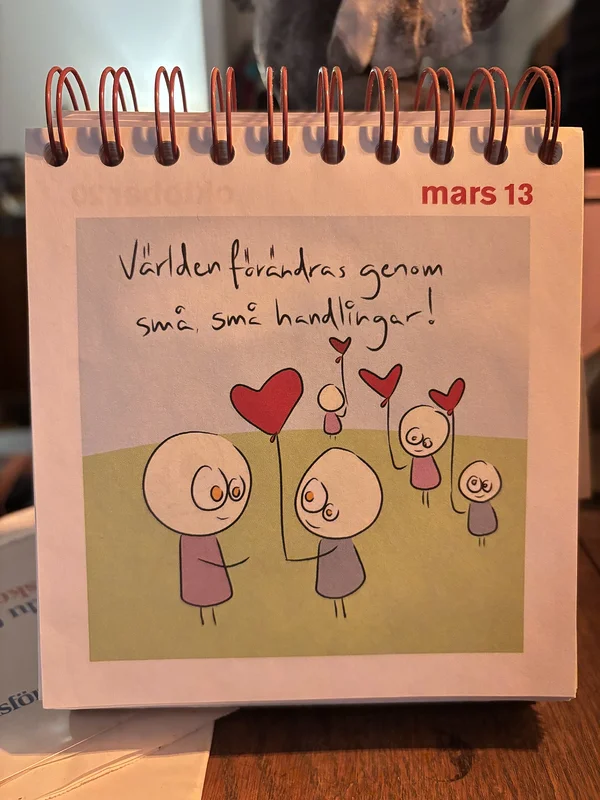 mars 13
Världen förändras genom
små, små handlingar!